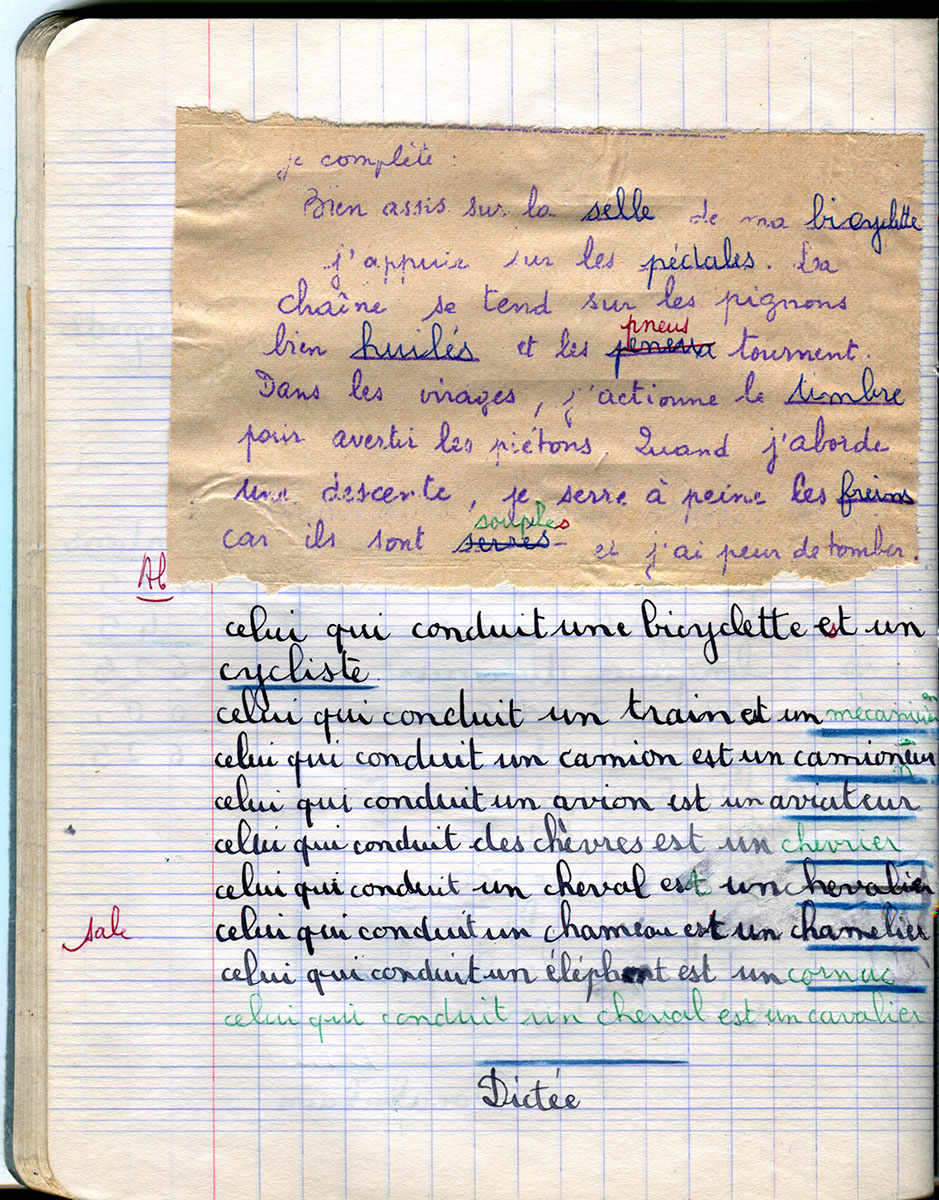 je complète :
Bien assis sur la selle de ma bicyclette
j'appuie sur les pédales. La
chaîne se tend sur les pignons
pneus
bien huilés et les tournent.
Dans les virages, j'actionne le timbre
pour avertir les piétons. Quand j'aborde
une descente, je serre à peine les freins
souples
car ils sont serres et j'ai peur de tomber.
Ab
celui qui conduit une bicyclette est un
cycliste
celui qui conduit un train est un mécanicien
celui qui conduit un camion est un camionneur
celui qui conduit un avion est un aviateur
celui qui conduit des chèvres est un chevrier
celui qui conduit un cheval est un chevalier
sale
celui qui conduit un chameau est un chamelier
celui qui conduit un éléphant est un cornac
celui qui conduit un cheval est un cavalier
Dictée